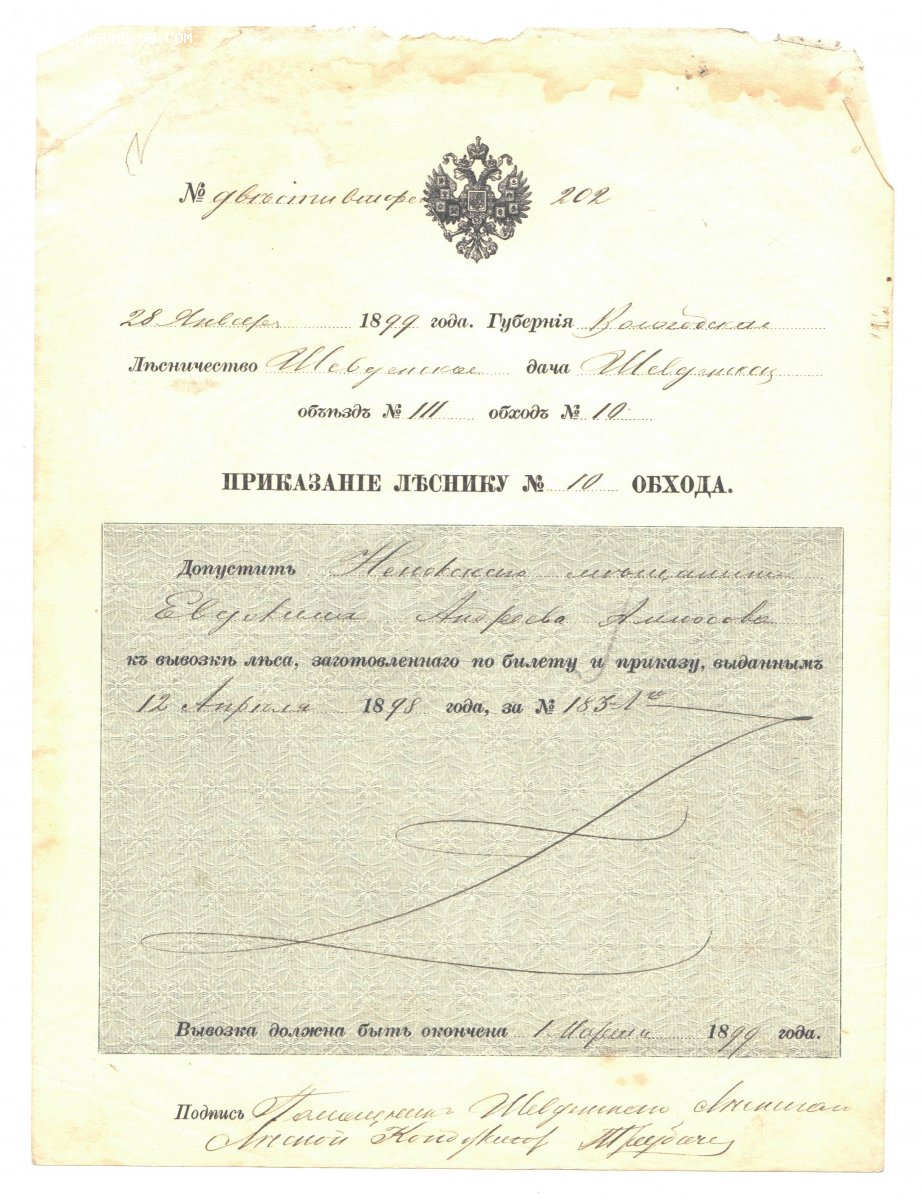 № двѣсти второе 202
28 Января 1899 года. Губернія Вологодская
Лѣсничество Шевденское дача Шевденская
объѣздъ № III обходъ № 10
ПРИКАЗАНІЕ ЛѢСНИКУ № 10 ОБХОДА.
Допустить мещанина
Андреева Амосова
къ вывозкѣ лѣса, заготовленнаго по билету и приказу, выданнымъ
12 Апрѣля 1898 года, за № 183-1
Вывозка должна быть окончена 1 Марта 1899 года.
Подпись Помощникъ Шевденскаго
Лѣсной Кондукторъ